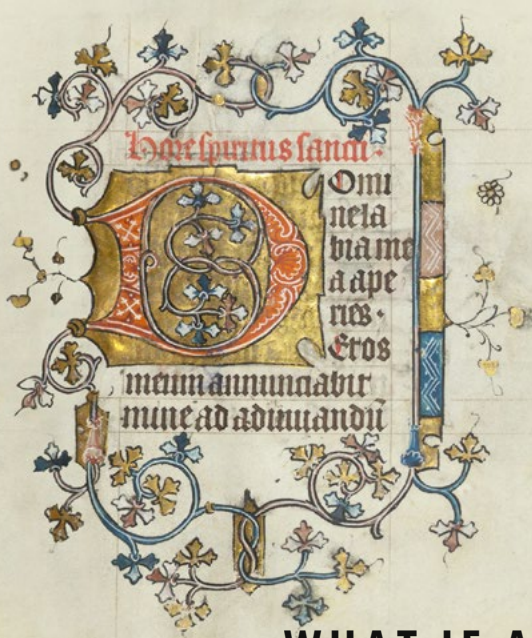 Hore spiritus sancti·
DOmi
ne la
bia me
a ape
ries·
Et os
meum annunciabit
mine ad adiuuandū
WHAT IF A